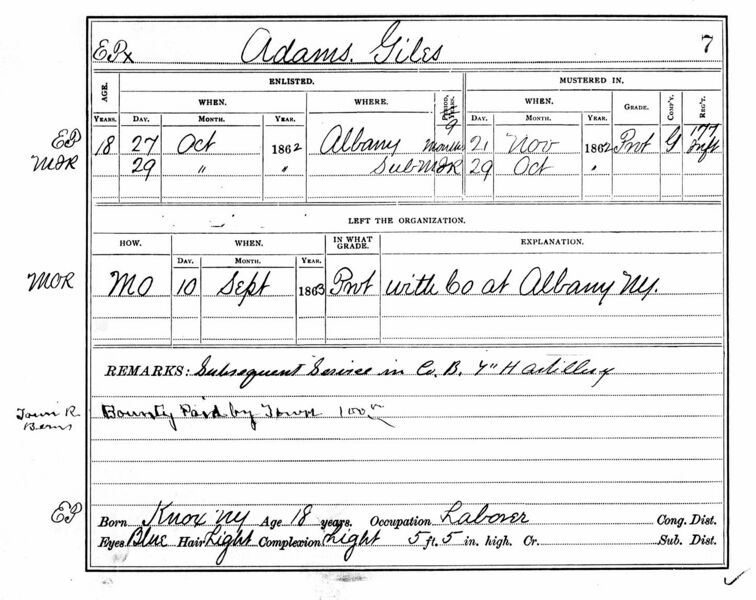 EPx Adams. Giles 7
ENLISTED. MUSTERED IN.
AGE. WHEN. WHERE. PERIOD, YEARS. WHEN. GRADE. COMP'Y. REG'T.
YEARS. DAY. MONTH. YEAR. DAY. MONTH. YEAR.
EP 18 27 Oct 1862 Albany 9 Months 21 Nov 1862 Pvt G 177 Inft
MOR 29 " " Sub MOR 29 Oct "
LEFT THE ORGANIZATION.
HOW. WHEN. IN WHAT GRADE. EXPLANATION.
DAY. MONTH. YEAR.
MOR MO 10 Sept 1863 Pvt with Co at Albany NY.
REMARKS: Subsequent Service in Co. B. 7" H artillery
Town R. Bern Bounty Paid by Town 100
EP Born Knox NY Age 18 years. Occupation Laborer Cong. Dist.
Eyes Blue Hair Light Complexion Light 5 ft. 5 in. high. Cr. Sub. Dist.